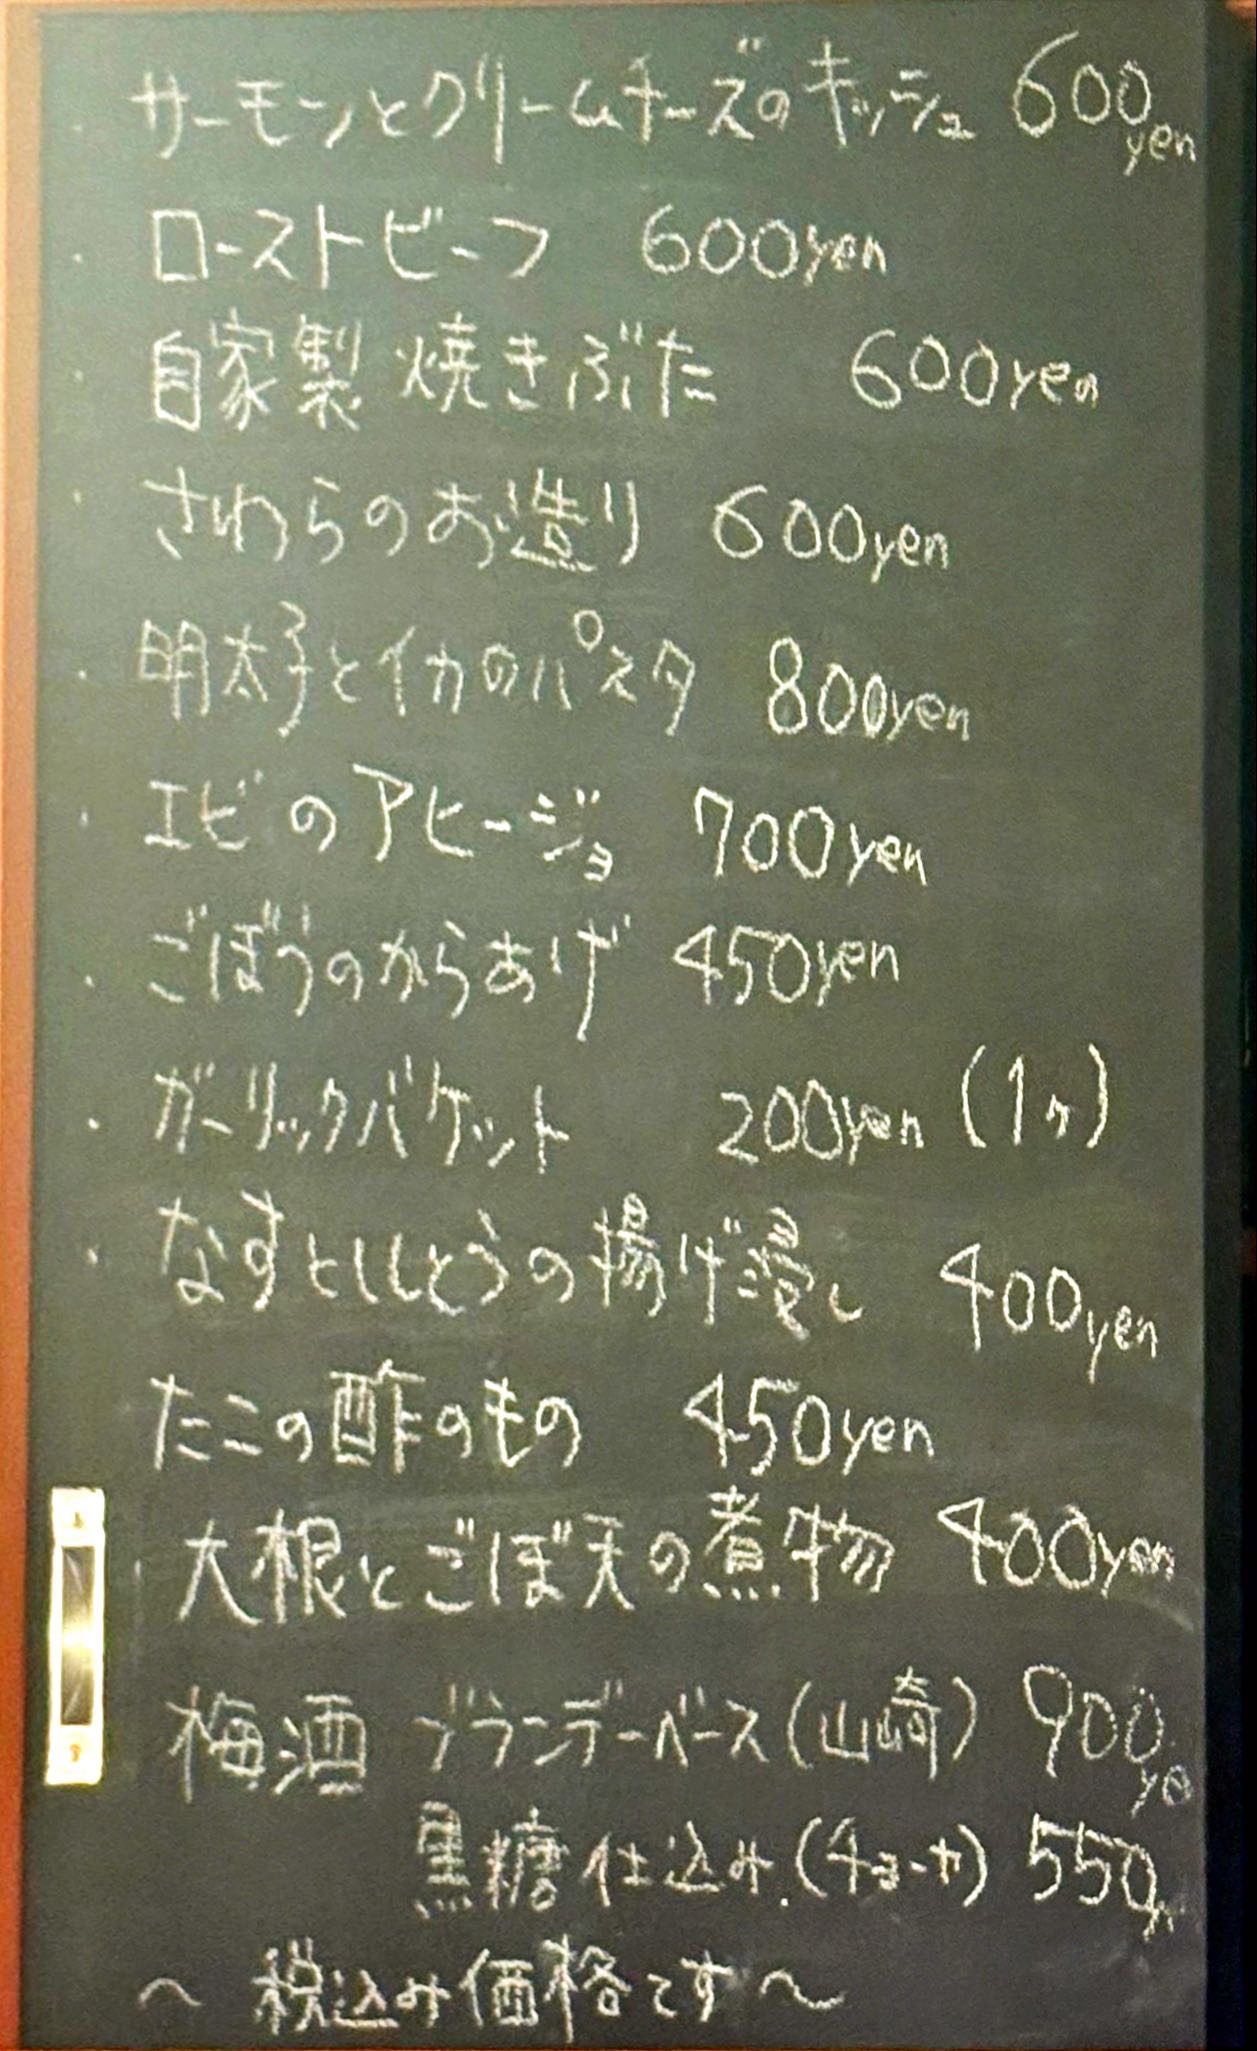 ・サーモンとクリームチーズのキッシュ 600yen
・ローストビーフ 600yen
・自家製 焼きぶた 600yen
・さわらのお造り 600yen
・明太子とイカのパスタ 800yen
・エビのアヒージョ 700yen
・ごぼうのからあげ 450yen
・ガーリックバケット 200yen (1ヶ)
・なすとししとうの揚げ浸し 400yen
たこの酢のもの 450yen
大根とごぼ天の煮物 400yen
梅酒 ブランデーベース(山崎) 900ye
黒糖仕込み.(チョーヤ) 550y
〜 税込み価格です〜